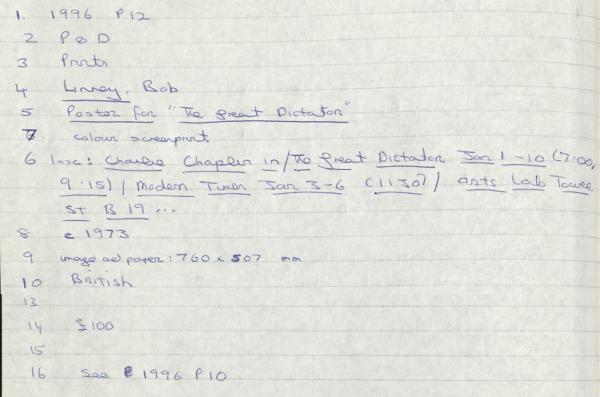 1. 1996 P12
2 P & D
3 Prints
4 Linney, Bob
5 Poster for "The Great Dictator"
7 colour screenprint
6 Insc: Charlie Chaplin in/The Great Dictator Jan 1-10 (7:00,
9.15) / Modern Times Jan 3-6 (1130) / Arts Lab Tower
St B 19 ...
8 c 1973
9 image and paper: 760 x 507 mm
10 British
13
14 £100
15
16 See 1996 P10